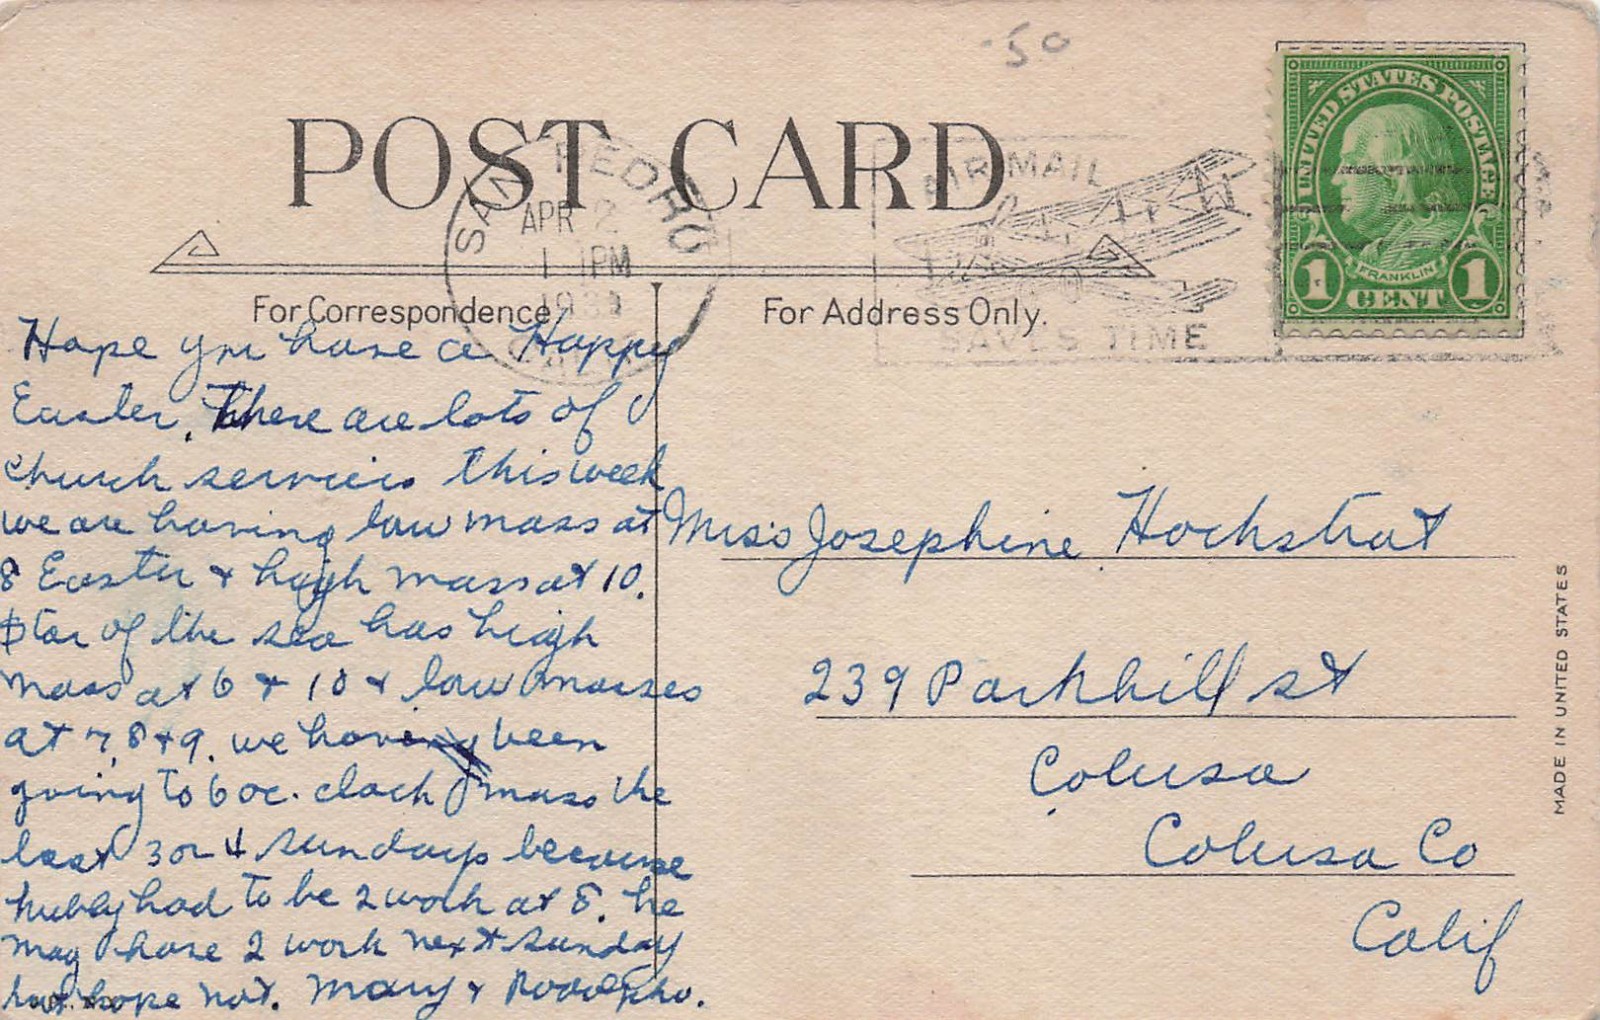 .50
POST CARD
UNITED STATES POSTAGE
FRANKLIN
1 CENT 1
SAN PEDRO
APR 2
1 PM
AIR MAIL
SAVES TIME
For Correspondence.
For Address Only.
Hope you have a Happy
Easter. There are lots of
church services this week
we are having low mass at
8 Easter & high mass at 10.
Star of the sea has high
mass at 6 & 10 & low masses
at 7, 8 & 9. we have been
going to 6 oc. clock mass the
last 3 or 4 sundays because
hubby had to be 2 work at 8. he
may have 2 work next sunday
but hope not. Mary &
Miss Josephine Hochstrat
239 Parkhill st
Colusa
Colusa Co
Calif
MADE IN UNITED STATES